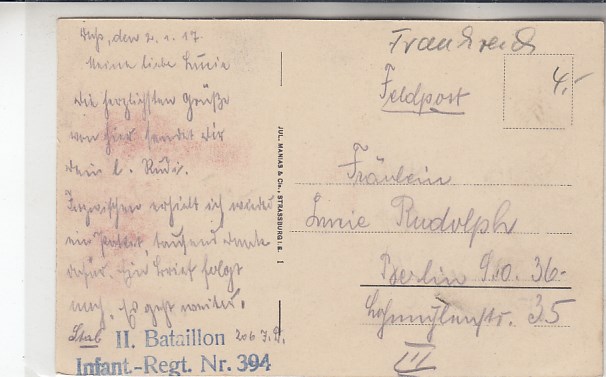 den 2.1.17.
Meine liebe Lucie
die herzlichsten Grüße
von hier sendet dir
dein l. Rudi.
Inzwischen erhielt ich wieder
ein Paket, tausend Dank
dafür. Ein Brief folgt
nach. Es geht weiter.
Stab
II. Bataillon 206 I.D.
Infant.-Regt. Nr. 394
JUL. MANIAS & CIE., STRASSBURG I. E.
Frankreich
4,-
Feldpost
Fräulein
Lucie Rudolph
Berlin S.O. 36-
Lohmühlenstr. 35
III